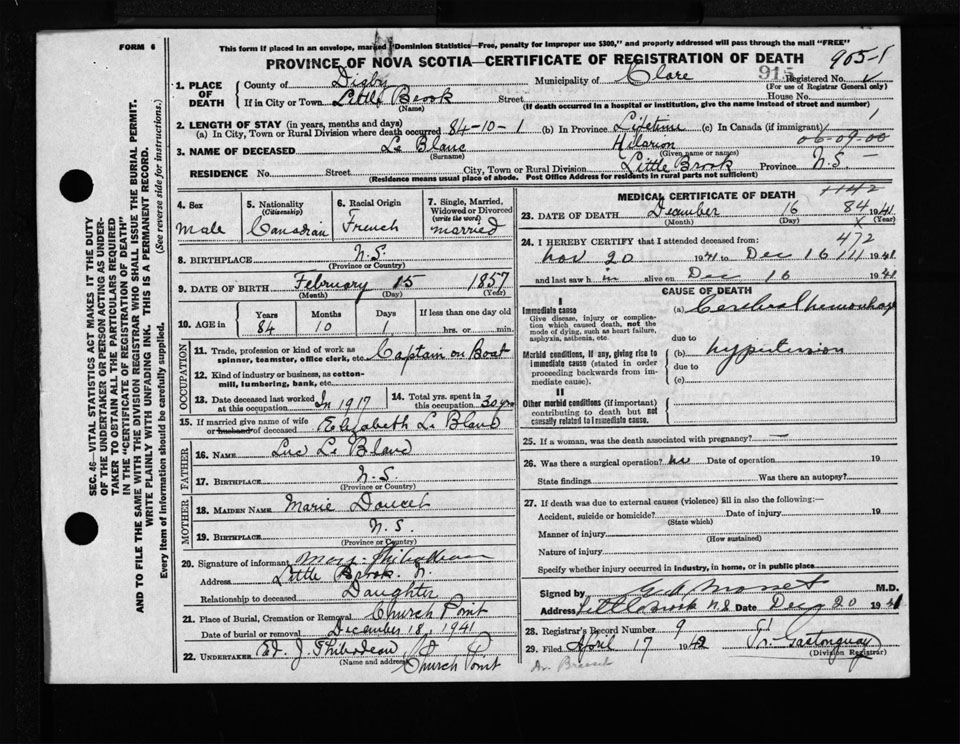 FORM 6
This form if placed in an envelope, marked "Dominion Statistics—Free, penalty for improper use $300," and properly addressed will pass through the mail "FREE"
PROVINCE OF NOVA SCOTIA—CERTIFICATE OF REGISTRATION OF DEATH
905-1
915
Registered No.
(For use of Registrar General only)
1. PLACE OF DEATH
County of Digby Municipality of Clare
If in City or Town Little Brook Street House No.
(Name) (If death occurred in a hospital or institution, give the name instead of street and number)
2. LENGTH OF STAY (in years, months and days)
(a) In City, Town or Rural Division where death occurred 84-10-1 (b) In Province Lifetime (c) In Canada (if immigrant)
06-09-00
3. NAME OF DECEASED Le Blanc Hilarion
(Surname) (Given name or names)
RESIDENCE No. Street City, Town or Rural Division Little Brook Province N.S
(Residence means usual place of abode. Post Office Address for residents in rural parts not sufficient)
4. Sex Male
5. Nationality (Citizenship) Canadian
6. Racial Origin French
7. Single, Married, Widowed or Divorced (write the word) married
8. BIRTHPLACE N.S.
(Province or Country)
9. DATE OF BIRTH February 15 1857
(Month) (Day) (Year)
10. AGE in Years Months Days If less than one day old
84 10 1 hrs. or min.
OCCUPATION
11. Trade, profession or kind of work as spinner, teamster, office clerk, etc. Captain on Boat
12. Kind of industry or business, as cotton-mill, lumbering, bank, etc.
13. Date deceased last worked at this occupation In 1917
14. Total yrs. spent in this occupation 30 yrs
15. If married give name of wife or husband of deceased Elizabeth Le Blanc
FATHER
16. NAME Luc Le Blanc
17. BIRTHPLACE N.S.
(Province or Country)
MOTHER
18. MAIDEN NAME Marie Doucet
19. BIRTHPLACE N.S.
(Province or Country)
20. Signature of informant Mary Thibodeau
Address Little Brook.
Relationship to deceased Daughter
21. Place of Burial, Cremation or Removal Church Point
Date of burial or removal December 18, 1941
22. UNDERTAKER Ed. J. Thibodeau Church Point
(Name and address)
MEDICAL CERTIFICATE OF DEATH
1142
23. DATE OF DEATH December 16 1941
84
(Month) (Day) (Year)
24. I HEREBY CERTIFY that I attended deceased from:
472
Nov 20 1941 to Dec 16 1941
and last saw h im alive on Dec 16 1941
CAUSE OF DEATH
I
Immediate cause
Give disease, injury or complication which caused death, not the mode of dying, such as heart failure, asphyxia, asthenia, etc.
(a) Cerebral hemorrhage
due to
Morbid conditions, if any, giving rise to immediate cause (stated in order proceeding backwards from immediate cause).
(b) hypertension
due to
(c)
II
Other morbid conditions (if important) contributing to death but not causally related to immediate cause.
25. If a woman, was the death associated with pregnancy? —
26. Was there a surgical operation? no Date of operation 19
State findings Was there an autopsy?
27. If death was due to external causes (violence) fill in also the following:—
Accident, suicide or homicide? Date of injury 19
(State which)
Manner of injury
(How sustained)
Nature of injury
Specify whether injury occurred in industry, in home, or in public place
Signed by M.D.
Address Little Brook N.S Date Dec 20 1941
28. Registrar's Record Number 9
29. Filed April 17 1942
(Division Registrar)
SEC. 46—VITAL STATISTICS ACT MAKES IT THE DUTY
OF THE UNDERTAKER OR PERSON ACTING AS UNDER-
TAKER TO OBTAIN ALL THE PARTICULARS REQUIRED
IN THE "CERTIFICATE OF REGISTRATION OF DEATH"
AND TO FILE THE SAME WITH THE DIVISION REGISTRAR WHO SHALL ISSUE THE BURIAL PERMIT.
WRITE PLAINLY WITH UNFADING INK. THIS IS A PERMANENT RECORD.
Every item of information should be carefully supplied. (See reverse side for instructions.)